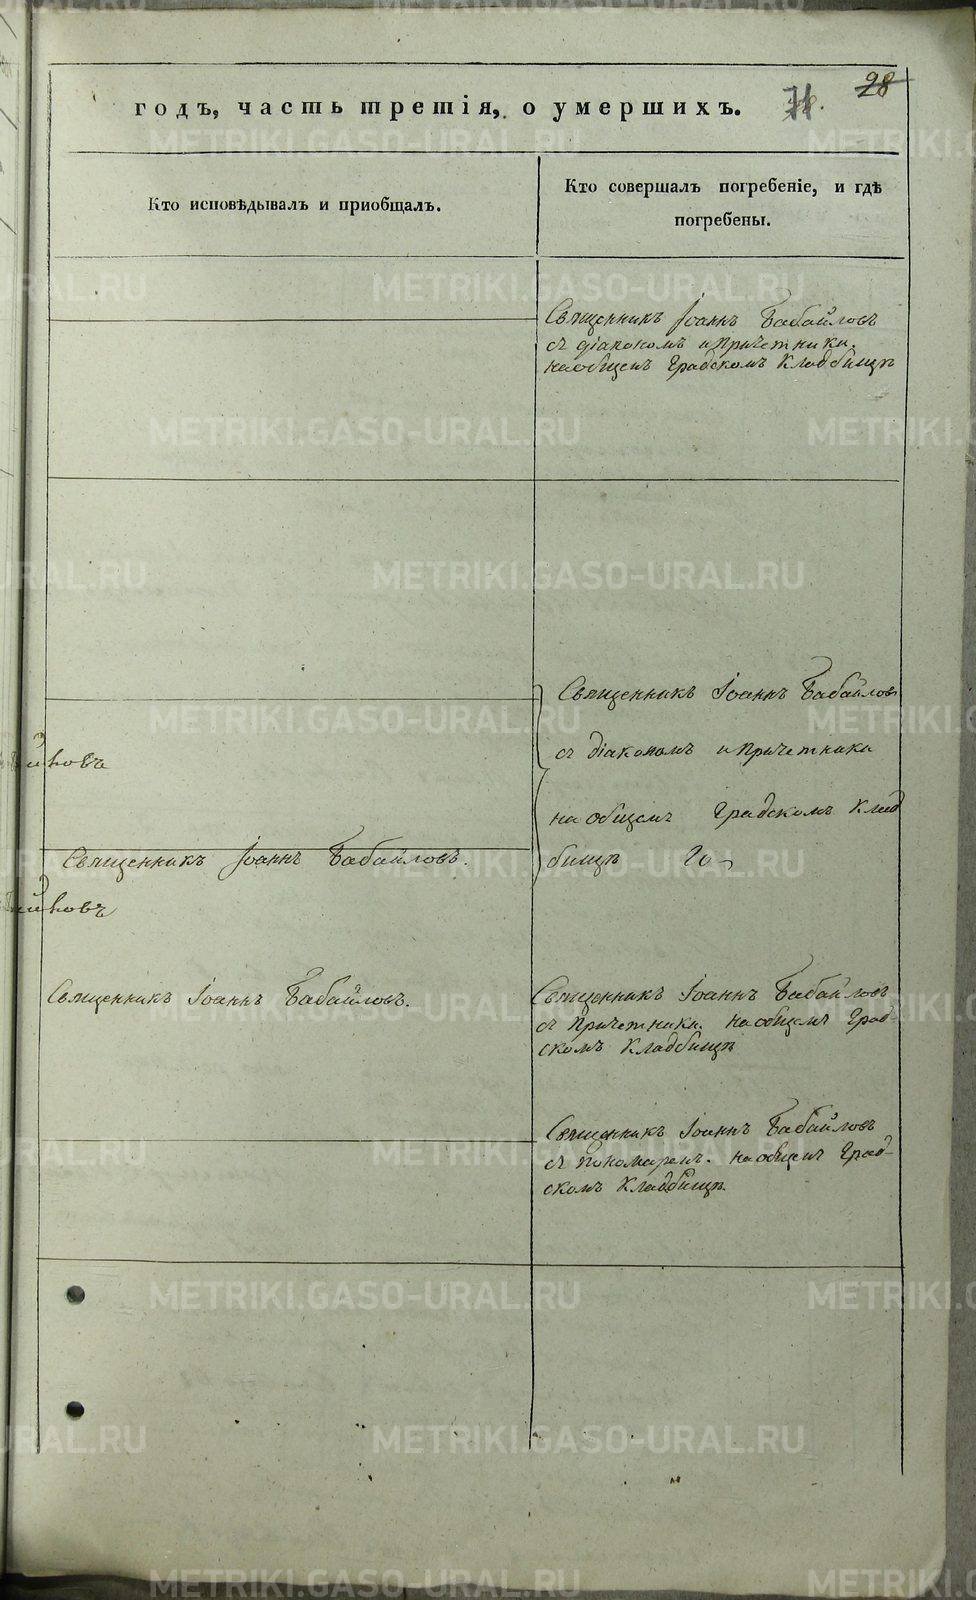 28
годъ, часть третія, о умершихъ.
Кто исповѣдывалъ и пріобщалъ.
Кто совершалъ погребеніе, и гдѣ
погребены.
Священникъ Іоаннъ Бабайловъ
съ діакономъ и причетники.
на общемъ Градскомъ Кладбищѣ
Священникъ Іоаннъ Бабайловъ
съ діакономъ и причетники
на общемъ Градскомъ Клад
бищѣ
йковъ
Священникъ Іоаннъ Бабайловъ.
йковъ
Священникъ Іоаннъ Бабайловъ.
Священникъ Іоаннъ Бабайловъ
съ причетники. на общемъ Град-
скомъ Кладбищѣ
Священникъ Іоаннъ Бабайловъ
съ пономаремъ. на общемъ Град-
скомъ Кладбищѣ.
METRIKI.GASO-URAL.RU